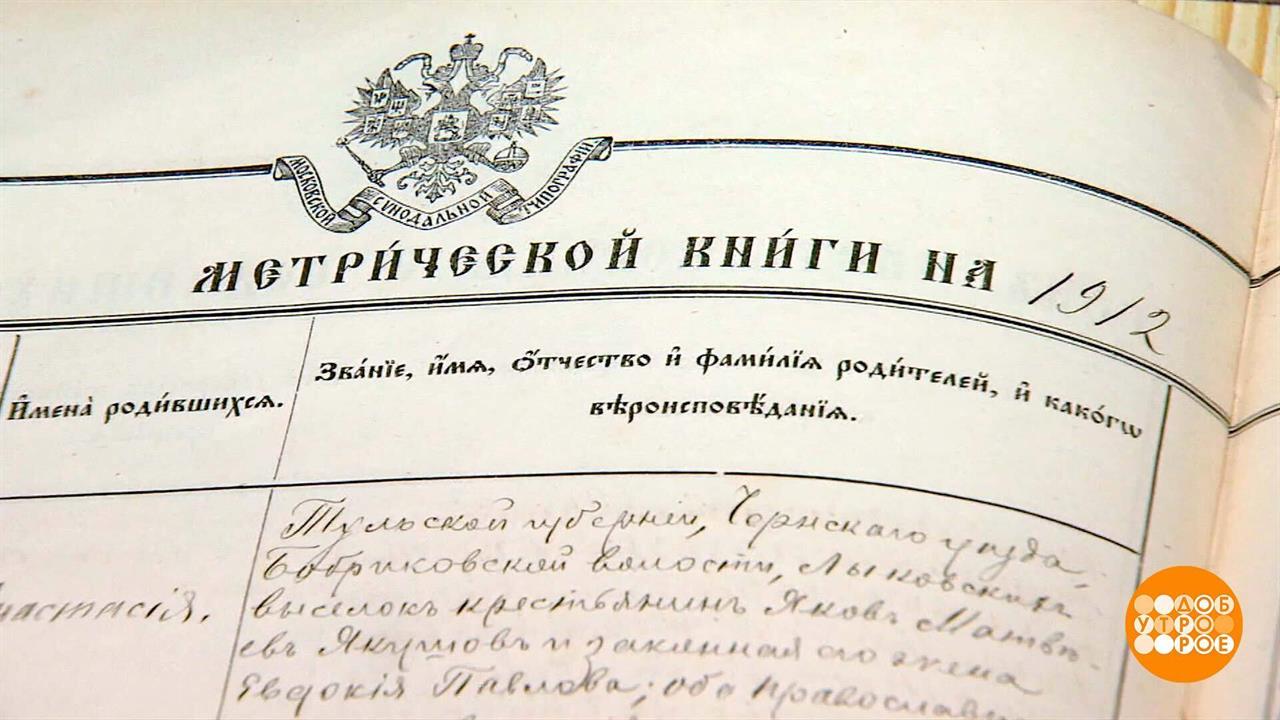 МОСКОВСКОЙ СѴНОДАЛЬНОЙ ТИПОГРАФІИ
МЕТРИ́ЧЕСКОЙ КНИ́ГИ НА 1912
И҆мена̀ роди́вшихсѧ.
Зва́нїе, и҆́мѧ, ѻ҆́тчество и҆ фами́лїѧ роди́телей, и҆ како́гѡ
вѣроисповѣ́данїѧ.
Тульской губерніи, Чернскаго уезда,
Бобриковской волости, Лыковскихъ
настасія.
выселокъ крестьянинъ Яковъ Матвѣ-
евъ Якушовъ и законная его жена
Евдокія Павлова; оба православн
ДОБ
УТРО
РОЕ